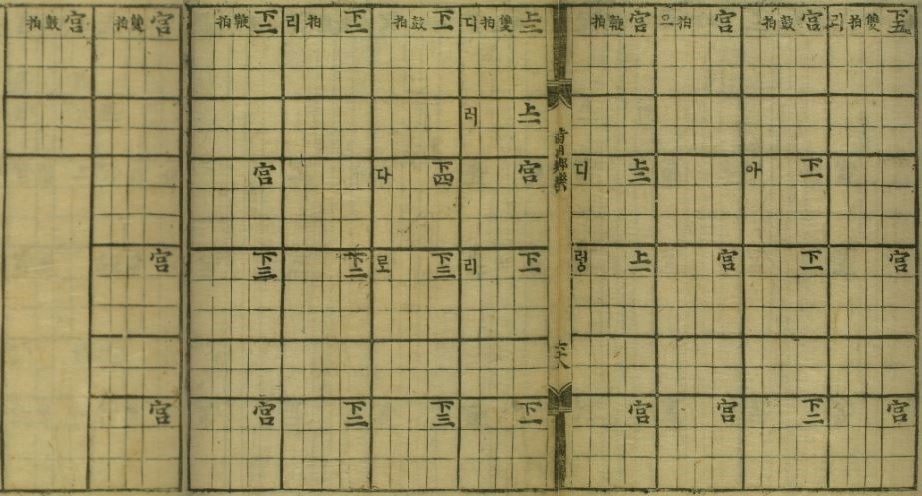 下五 雙 拍
宮
下五
宮 鼓 拍
下一 아
下一
下二
宮 拍 으
宮
宮
宮 鞭 拍
上三 디
上一 렁
宮
時用鄕樂
上三 雙 拍 디
上一 러
宮
下一 리
下一
下一 鼓 拍
下四 다
下三 로
下三
下二 拍 리
下二
下二
下二 鞭 拍
宮
下三
宮
宮 雙 拍
宮
宮
宮 鼓 拍